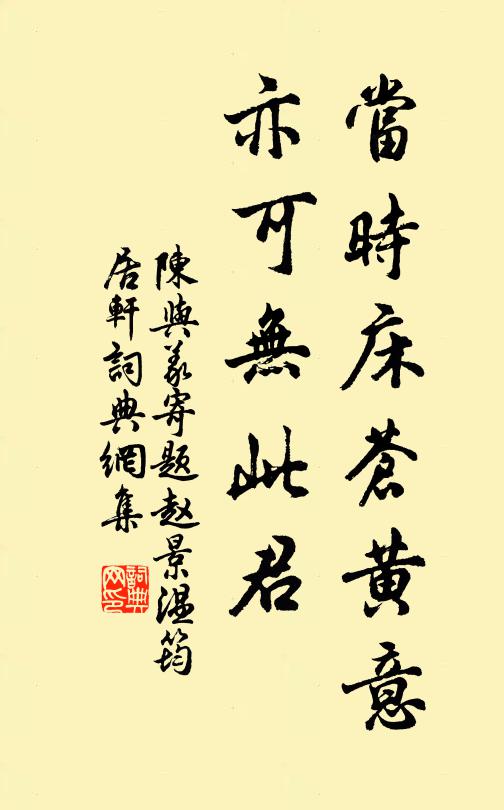 當時床蒼黃意
亦可無此君
陳與義寄題赵景温筠
居軒詞典網集
詞典网印